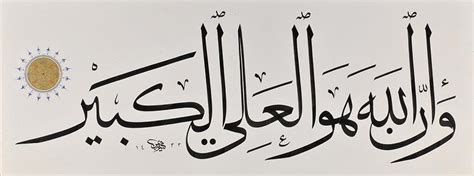 وَأَنَّ اللّٰهَ هُوَ الْعَلِيُّ الْكَبِيْرُ